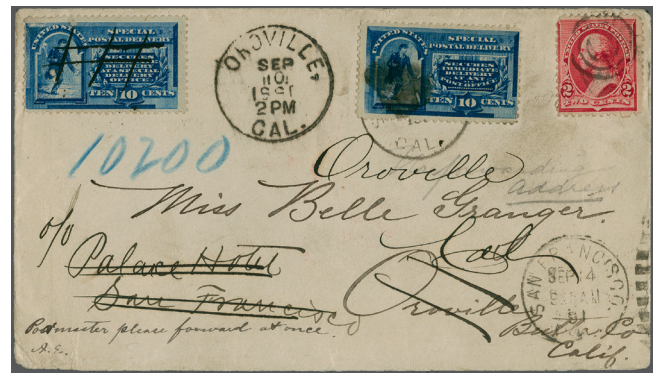 UNITED STATES
SPECIAL
POSTAL DELIVERY
SECURES
IMMEDIATE
DELIVERY
AT A SPECIAL
DELIVERY
OFFICE.
TEN 10 CENTS
OROVILLE,
SEP
10
2 PM
CAL.
UNITED STATES
SPECIAL
POSTAL DELIVERY
SECURES
IMMEDIATE
DELIVERY
POST OFFICE
TEN 10 CENTS
CAL.
2 2
TWO CENTS
10200
Oroville
Address
Miss Belle Granger.
Cal
c/o
Palace Hotel
San Francisco
SAN FRANCISCO
SEP 14
AM
91
Oroville
Butte Co
Calif.
Postmaster please forward at once.